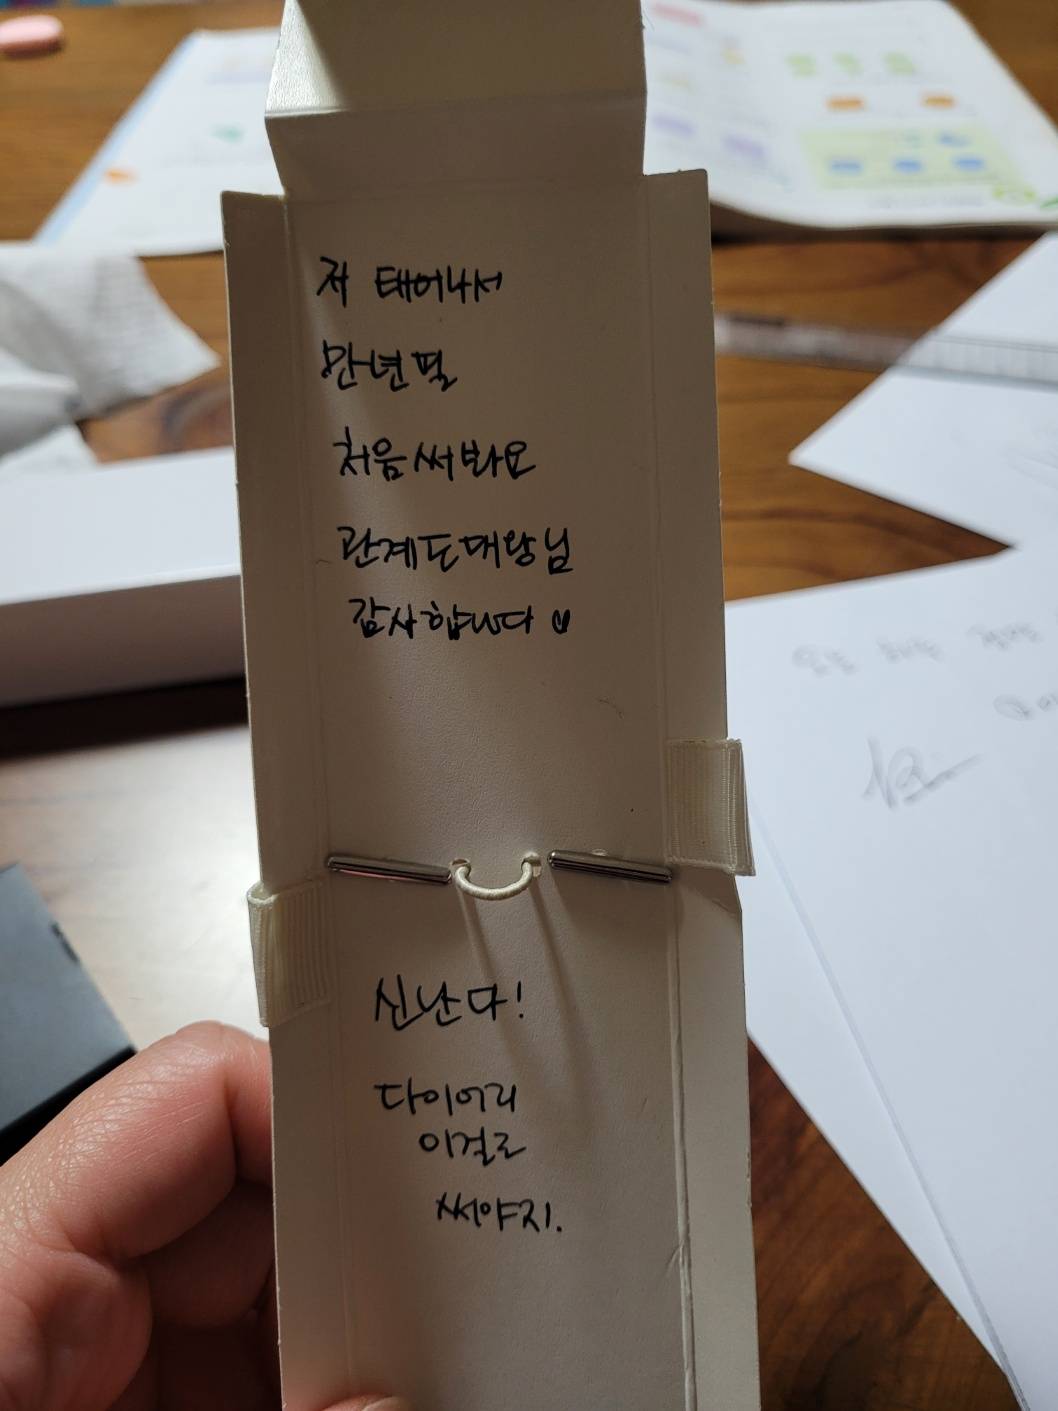 저 태어나서
만년필
처음 써봐요
관계도대왕님
감사합니다
신난다!
다이어리
이걸로
써야지.